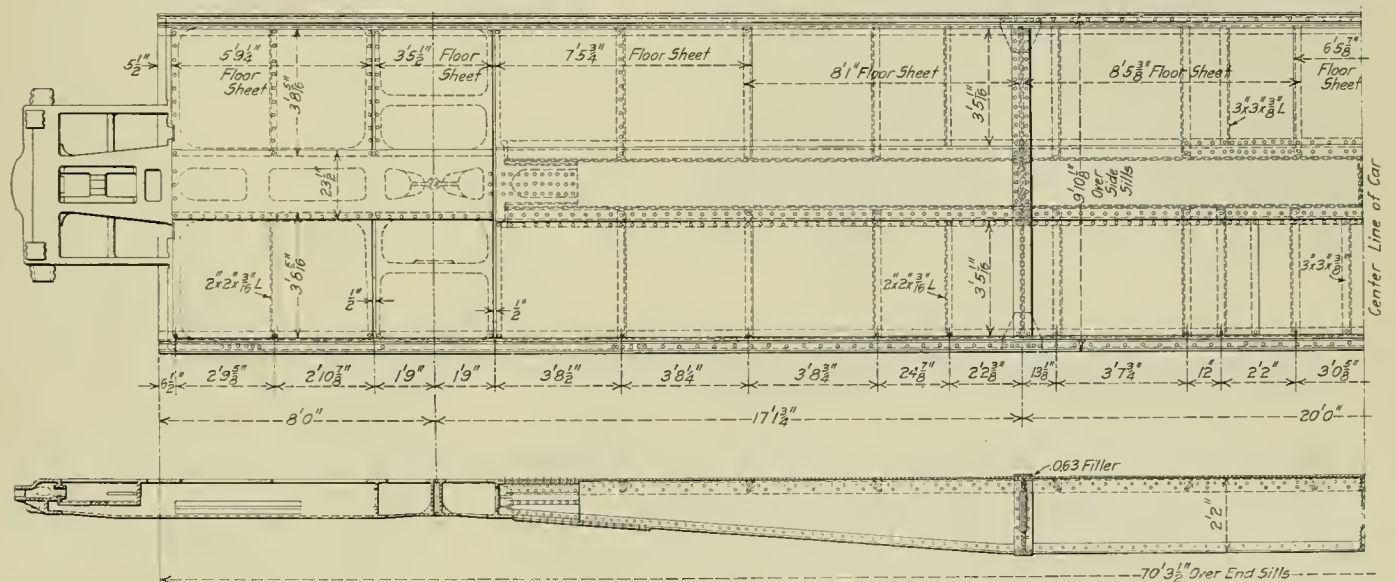 5 1/2"
5'9 1/4"
Floor
Sheet
3'8 5/16"
3'5 1/2"
Floor
Sheet
7'5 3/4"
Floor Sheet
8'1" Floor Sheet
3'5 1/16"
8'5 3/8" Floor Sheet
6'5 7/8"
Floor
Sheet
3"x3"x3/8 L
23 1/2"
9'10 1/8"
Over
Side
Sills
Center Line of Car
2"x2"x3/16 L
3'8 5/16"
1/2"
1/2"
2"x2"x3/16 L
3'5 1/16"
3"x3"x3/8"
6 1/2"
2'9 5/8"
2'10 7/8"
1'9"
1'9"
3'8 1/2"
3'8 1/4"
3'8 3/4"
24 7/8"
2'2 3/8"
13 1/8"
3'7 3/4"
12"
2'2"
3'0 5/8"
8'0"
17'1 3/4"
20'0"
.063 Filler
2'2"
70'3 1/2" Over End Sills